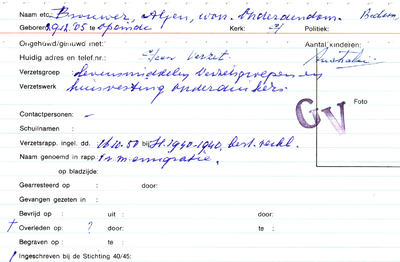 Naam etc. Brouwer, Aljen, won. Onderdendam. Bedum
Geboren 29.12.'05 te Opeinde Kerk: Politiek:
Ongehuwd/gehuwd met: Aantal kinderen:
Huidig adres en telef.nr.: Geen verzet. Australië.
Verzetsgroep levensmiddelen verzetsgroepen en
Verzetswerk huisvesting onderduikers.
GV
Foto
Contactpersonen: -
Schuilnaam : -
Verzetsrapp. ingel. dd. 16.10.50 bij St. 1940-1940,
Naam genoemd in rapp.: i.v.m. emigratie.
op bladzijde:
Gearresteerd op : door:
Gevangen gezeten in :
Bevrijd op : uit : door:
+ Overleden op : ? door: te :
Begraven op : te :
Ingeschreven bij de Stichting 40/45: